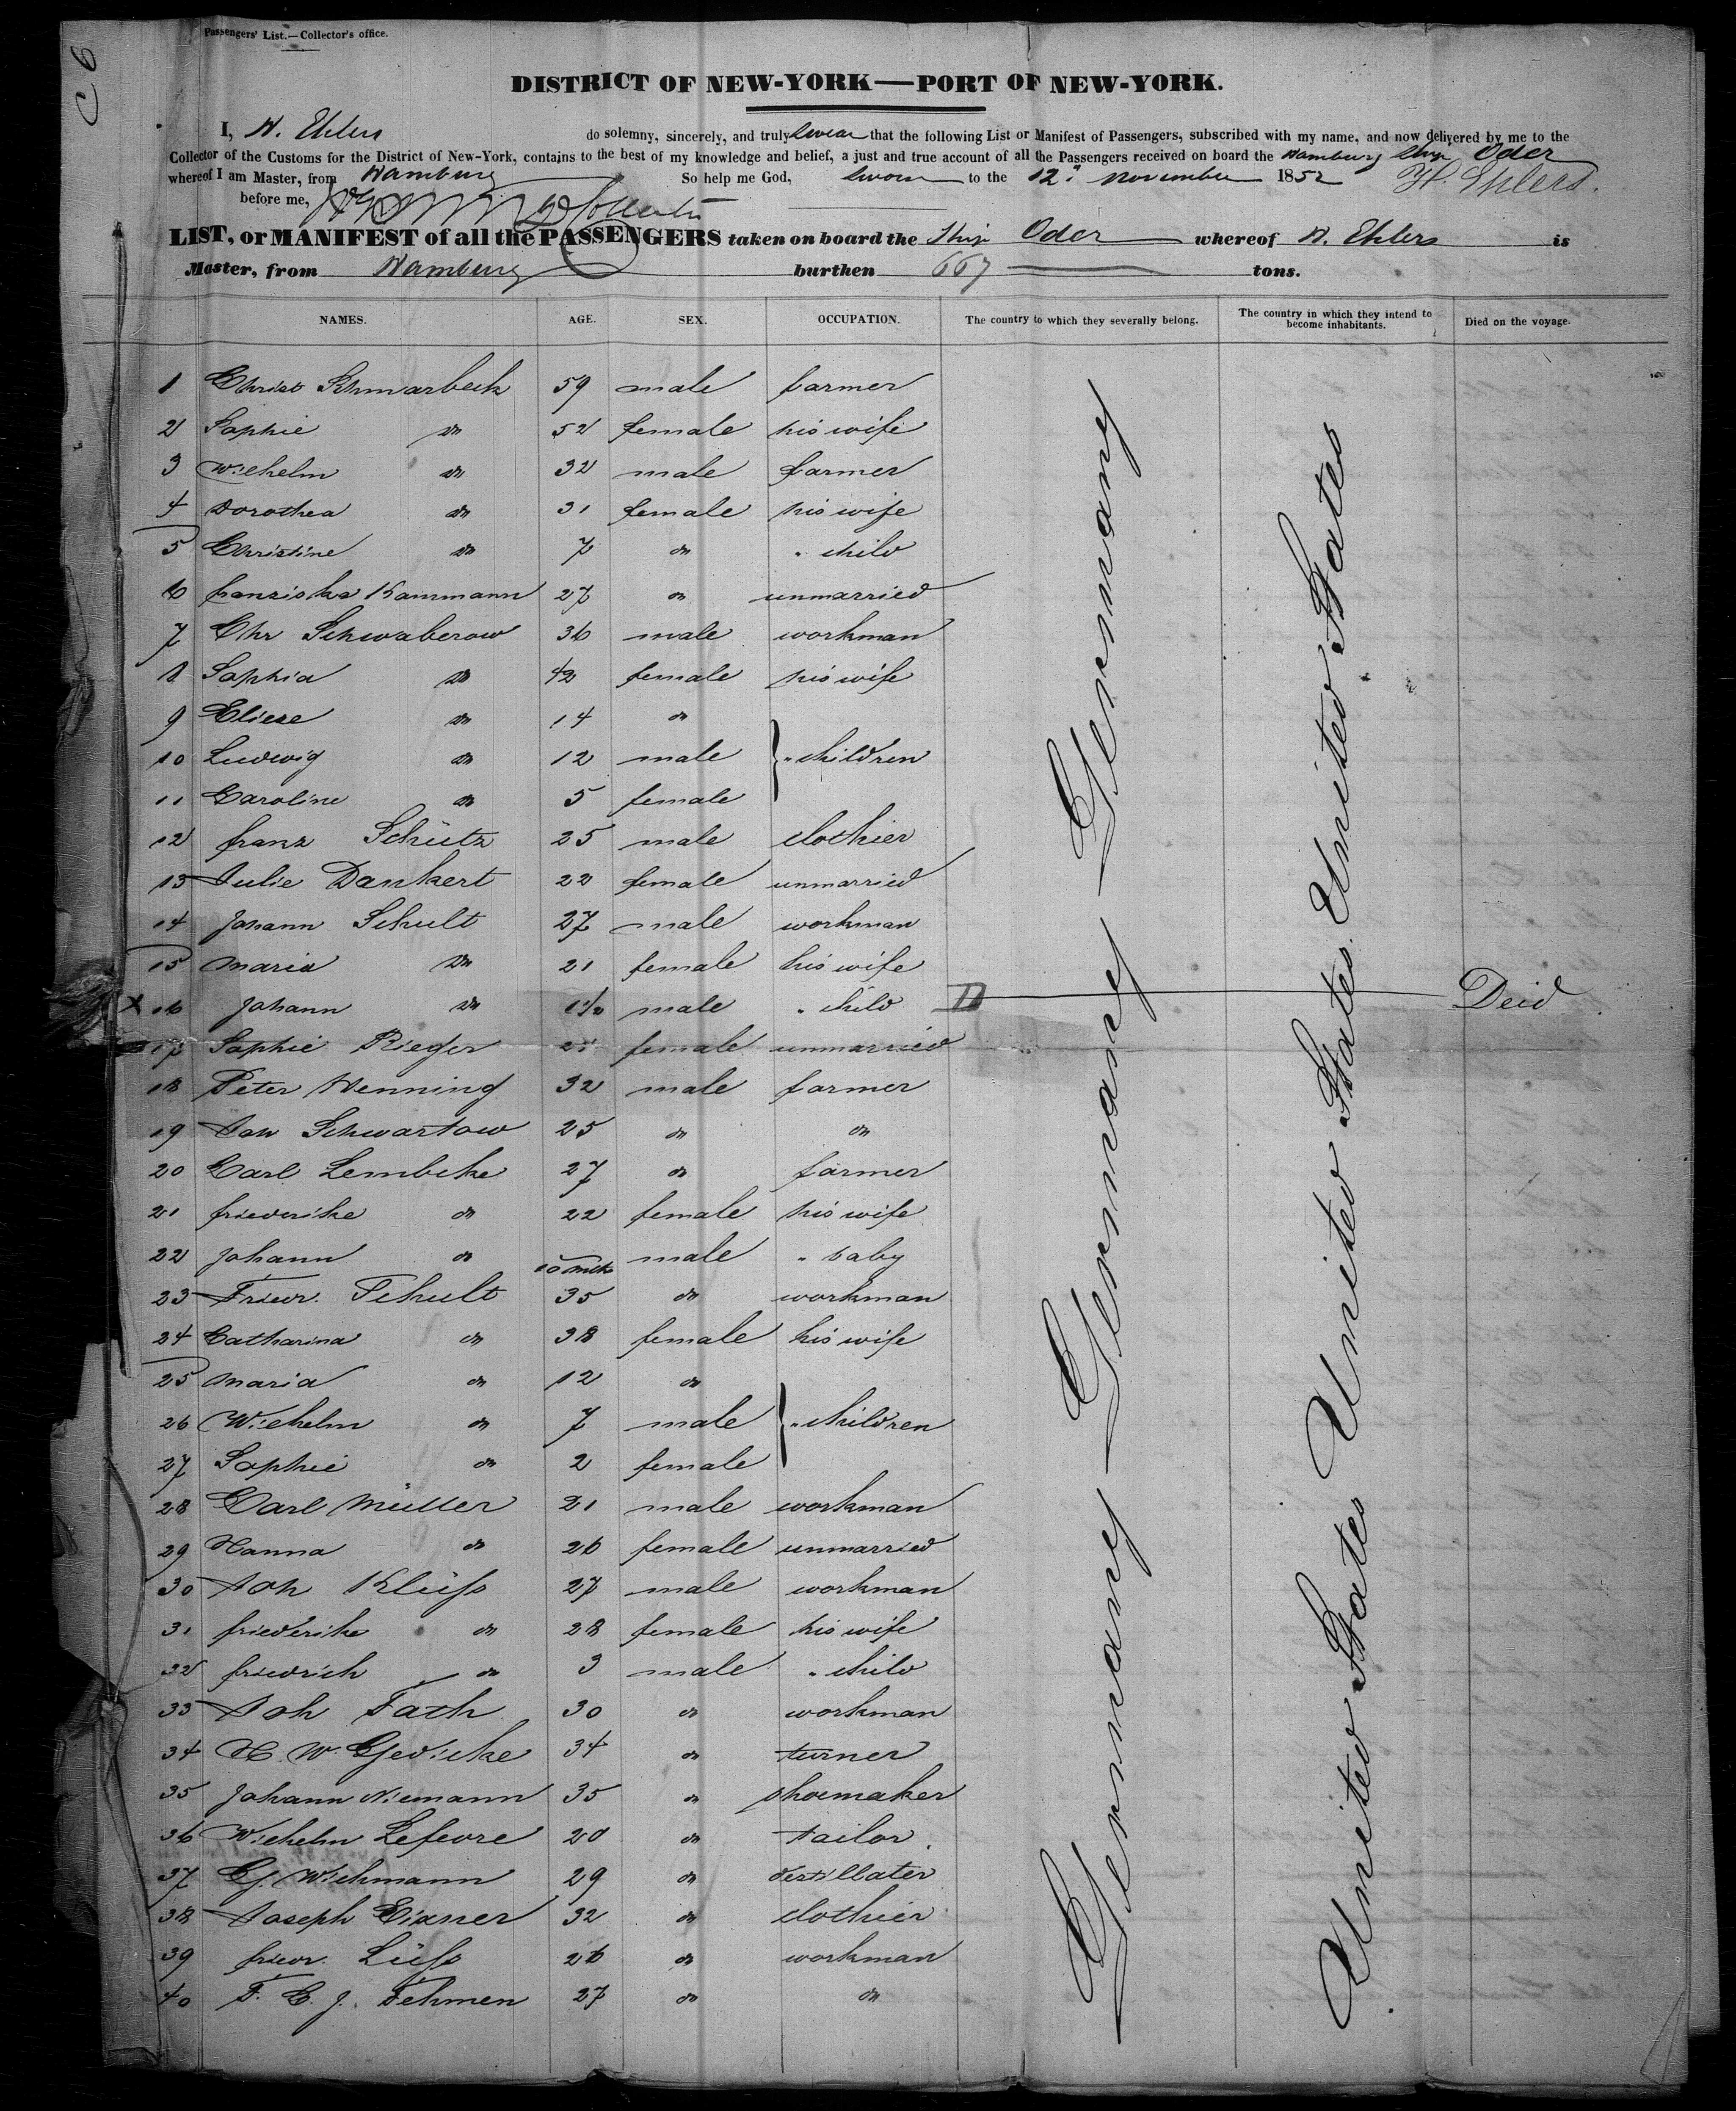 C 6
Passengers' List.—Collector's office.
DISTRICT OF NEW-YORK—PORT OF NEW-YORK.
I, H. Ehlers do solemny, sincerely, and truly swear that the following List or Manifest of Passengers, subscribed with my name, and now delivered by me to the
Collector of the Customs for the District of New-York, contains to the best of my knowledge and belief, a just and true account of all the Passengers received on board the Hamburg Ship Oder
whereof I am Master, from Hamburg So help me God, Sworn to the 12. november 1852 H. Ehlers.
before me,
LIST, or MANIFEST of all the PASSENGERS taken on board the Ship Oder whereof H. Ehlers is
Master, from Hamburg burthen 667 tons.
NAMES. AGE. SEX. OCCUPATION. The country to which they severally belong. The country in which they intend to become inhabitants. Died on the voyage.
1 Christ Schmarbeck 59 male farmer
2 Sophie do 52 female his wife
3 Wilhelm do 32 male farmer
4 Dorothea do 31 female his wife
5 Christine do 7 do " child
6 franziska Kaurmann 27 do unmarried
7 Chr Schwaberow 36 male workman
8 Sophia do 42 female his wife
9 Eliese do 14 do
10 Ludwig do 12 male " children
11 Caroline do 5 female
12 franz Schütz 25 male clothier
13 Julie Dankert 22 female unmarried
14 Johann Schult 27 male workman
15 maria do 21 female his wife
X 16 Johann do 1 1/2 male " child D Deid
17 Sophie Rieger 21 female unmarried
18 Peter Henning 32 male farmer
19 Joh Schwartow 25 do do
20 Carl Lembcke 27 do farmer
21 friederike do 22 female his wife
22 Johann do 10 mth male " baby
23 Friedr. Schult 35 do workman
24 Catharina do 38 female his wife
25 maria do 12 do
26 Wilhelm do 7 male " children
27 Sophie do 2 female
28 Carl Müller 21 male workman
29 Hanna do 26 female unmarried
30 Joh Klüfs 27 male workman
31 friederike do 28 female his wife
32 friedrich do 3 male " child
33 Joh Fath 30 do workman
34 H. W Gedicke 34 do turner
35 Johann Niemann 35 do shoemaker
36 Wilhelm Lefevre 20 do tailor.
37 G. Wichmann 29 do destillater
38 Joseph Eixner 32 do clothier
39 friedr. Lüfs 26 do workman
40 F. C. J. Tehmen 27 do do
Germany Germany Germany
United States United States United States